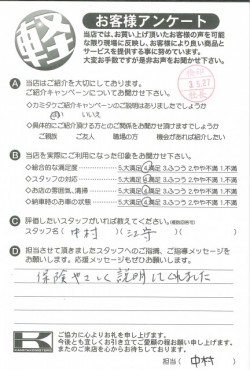 軽
お客様アンケート
当店では、お買い上げ頂いたお客様の声を可能
な限り現場に反映し、お客様により良い商品と
サービスを提供する事に努めています。
大変お手数ですが是非お声をお聞かせ下さい。
A 当店はご紹介を大切にしております。
ご紹介キャンペーンについてお聞かせ下さい。
◇カミタフご紹介キャンペーンのご説明はありましたでしょうか
はい いいえ
◇具体的にご紹介頂ける方とのご関係をお聞かせ頂けますでしょうか
ご親族 ご友人 職場の方 機会があれば紹介したい
B 当店を実際にご利用になった印象をお聞かせ下さい。
◇総合的な満足度 5.大満足 4.満足 3.ふつう 2.やや不満 1.不満
◇スタッフの対応 5.大満足 4.満足 3.ふつう 2.やや不満 1.不満
◇お店の雰囲気、清掃 5.大満足 4.満足 3.ふつう 2.やや不満 1.不満
◇納車時のお車の状態 5.大満足 4.満足 3.ふつう 2.やや不満 1.不満
C 評価したいスタッフがいれば教えてください。(複数回答可)
スタッフ名 ( 中村 ) ( 江守 )
D 担当させて頂きましたスタッフへのご指摘、ご指導メッセージを
お願いします。応援メッセージもぜひお願いします。
保険やさしく説明してくれました
K
ご協力に心よりお礼を申し上げます。
今後とも宜しくお引き立てご愛顧の程お願い申し上げます。
またのご来店を心からお待ちしております。
担当 ( 中村 )